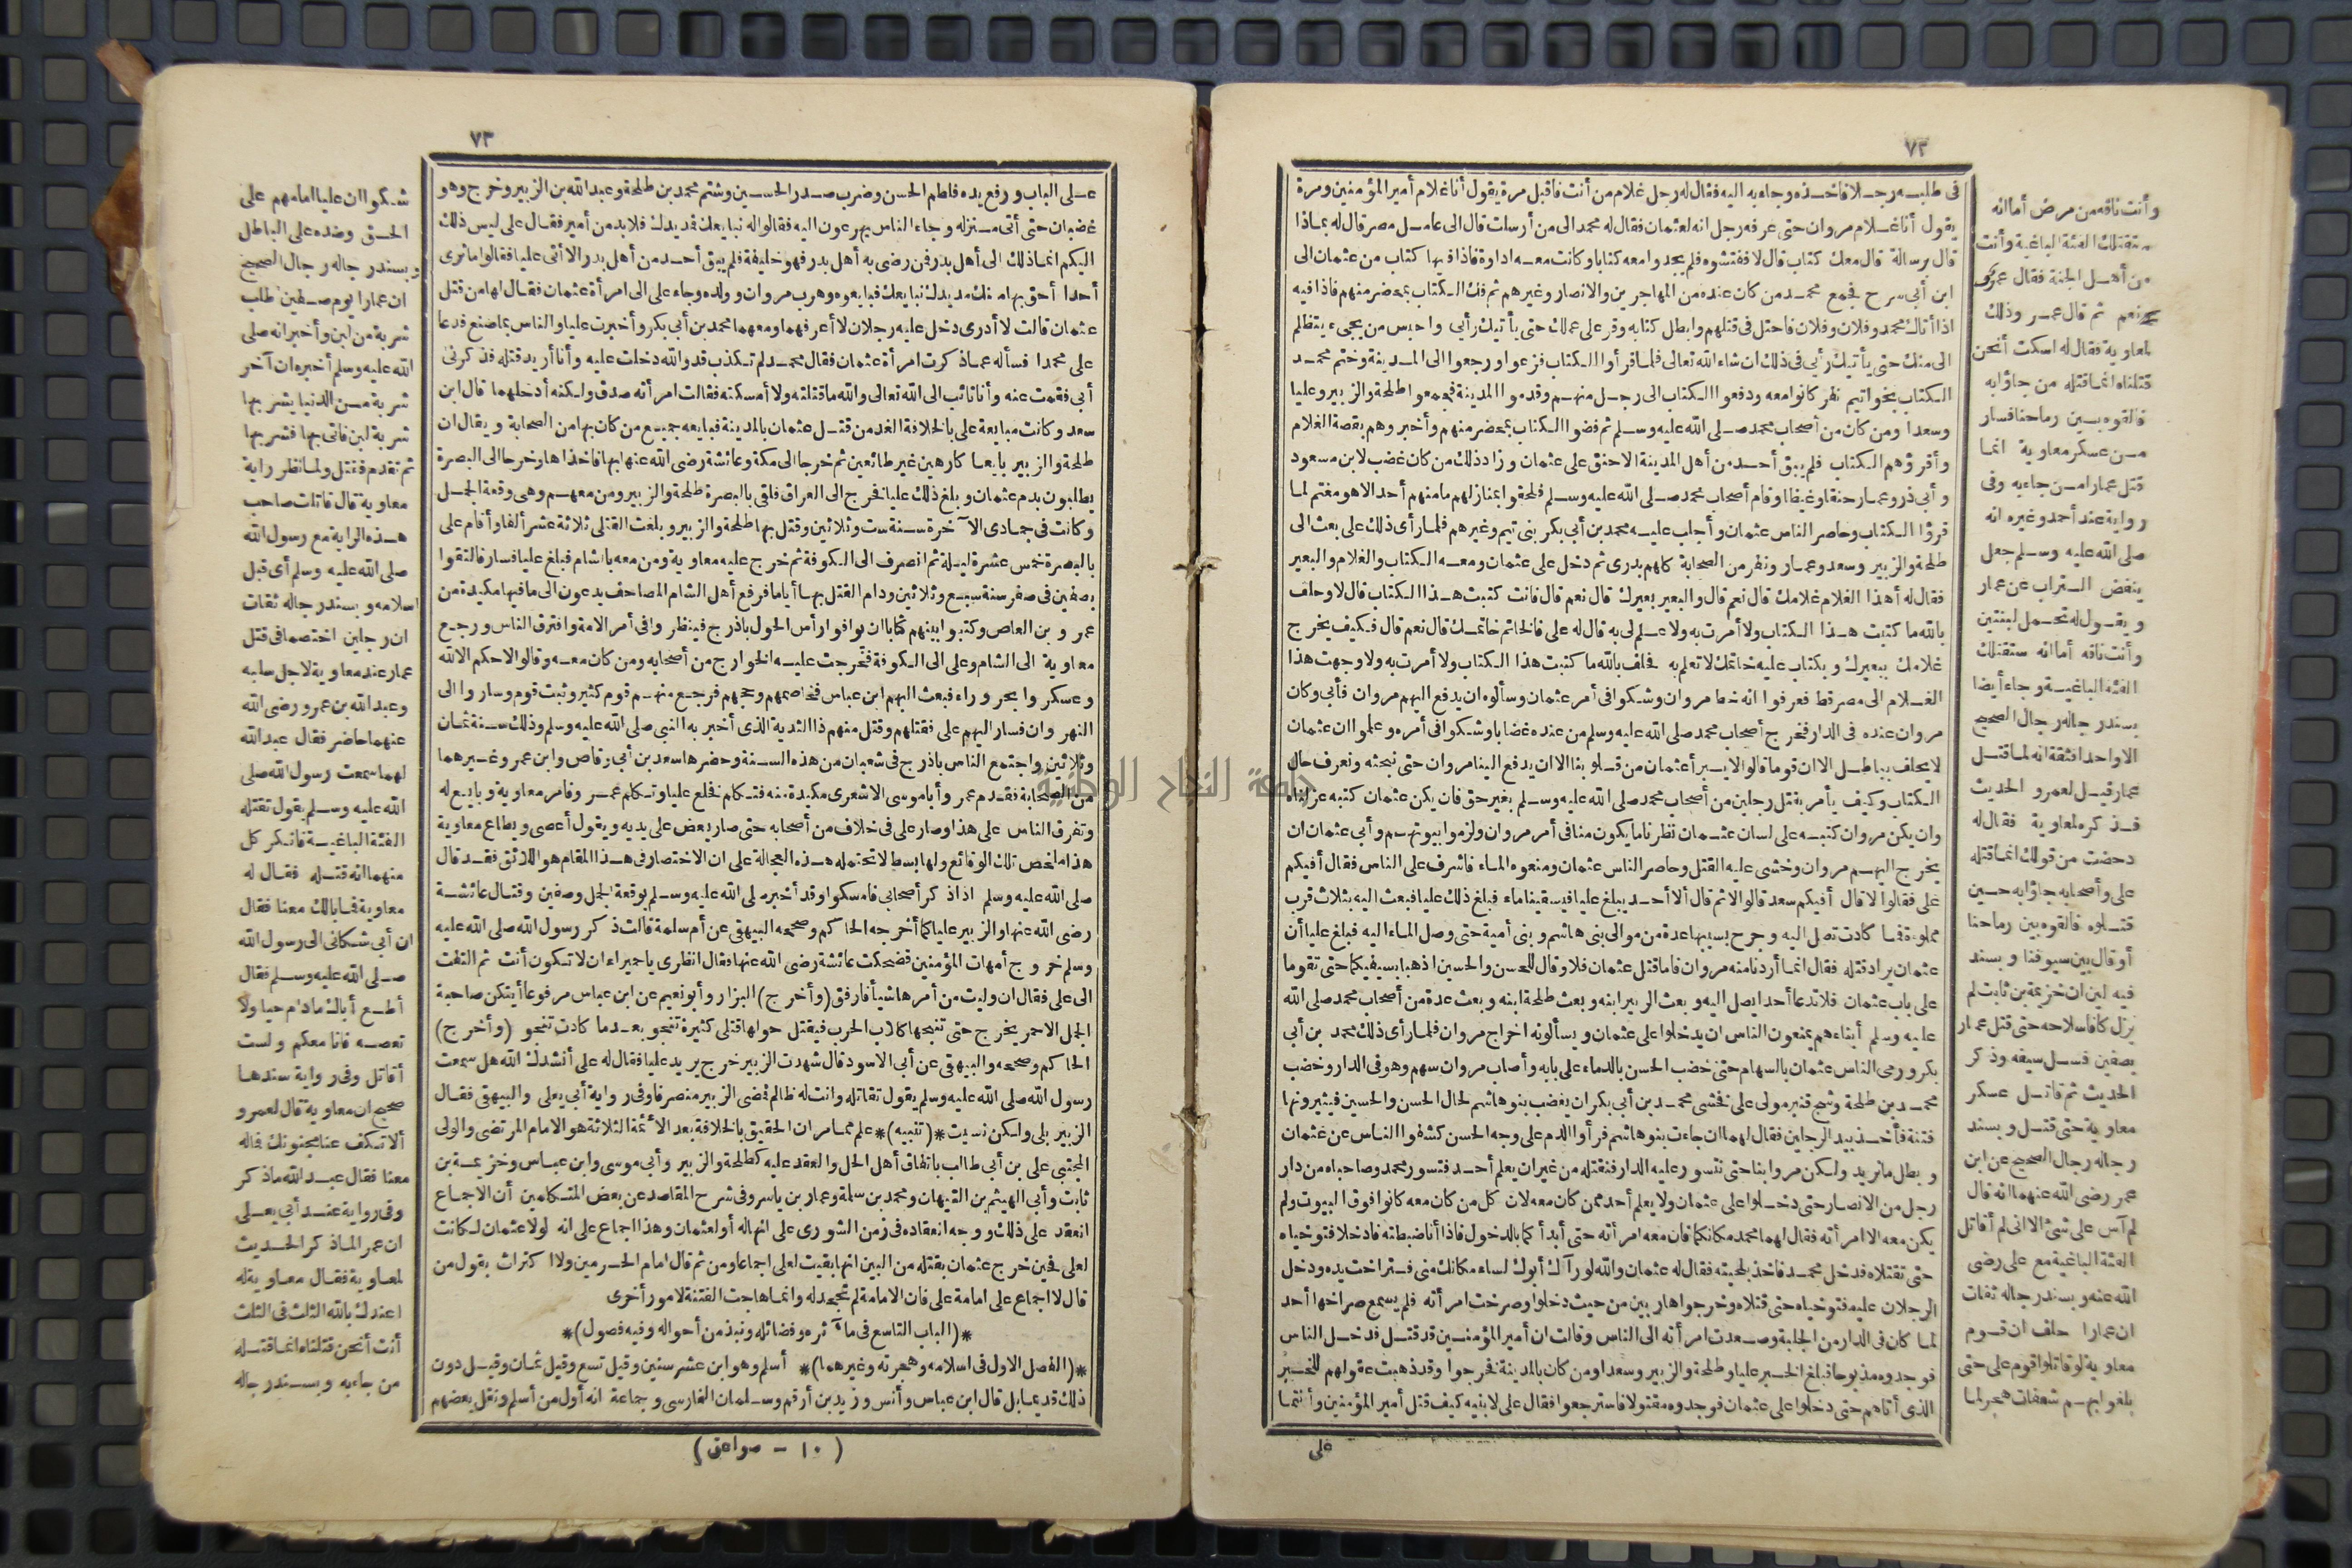 ٧٢
فى طلبه رجلا فاخذه وجاء به اليه فقال له رجل غلام من أنت فاقبل مرة يقول أنا غلام أمير المؤمنين ومرة
يقول أنا غلام مروان حتى عرفه رجل انه لعثمان فقال له محمد الى من أرسلت قال الى عامل مصر قال له بماذا
قال برسالة قال معك كتاب قال لا ففتشوه فلم يجدوا معه كتابا وكانت معه اداوة فاذا فيها كتاب من عثمان الى
ابن أبى سرح فجمع محمد من كان عنده من المهاجرين والانصار وغيرهم ثم فك الكتاب بمحضر منهم فاذا فيه
اذا أتاك محمد وفلان وفلان فاحتل فى قتلهم وابطل كتابه وقر على عملك حتى يأتيك رأيى واحبس من يجىء يتظلم
الى منك حتى يأتيك رأيى فى ذلك ان شاء الله تعالى فلما قرأوا الكتاب فزعوا ورجعوا الى المدينة وختم محمد
الكتاب بخواتيم نفر كانوا معه ودفعوا الكتاب الى رجل منهم وقدموا المدينة فجمعوا طلحة والزبير وعليا
وسعدا ومن كان من أصحاب محمد صلى الله عليه وسلم ثم فضوا الكتاب بمحضر منهم وأخبروهم بقصة الغلام
وأقرؤهم الكتاب فلم يبق أحد من أهل المدينة الا حنق على عثمان وزاد ذلك من كان غضب لابن مسعود
وأبى ذر وعمار حنقا وغيظا وقام أصحاب محمد صلى الله عليه وسلم فلحقوا بمنازلهم ما منهم أحد الا هو مغتم لما
قرؤا الكتاب وحاصر الناس عثمان وأجلب عليه محمد بن أبى بكر بنى تيم وغيرهم فلما رأى ذلك على بعث الى
طلحة والزبير وسعد وعمار ونفر من الصحابة كلهم بدرى ثم دخل على عثمان ومعه الكتاب والغلام والبعير
فقال له أهذا الغلام غلامك قال نعم قال والبعير بعيرك قال نعم قال فانت كتبت هذا الكتاب قال لا وحلف
بالله ما كتبت هذا الكتاب ولا أمرت به ولا علم لى به قال له على فالخاتم خاتمك قال نعم قال فكيف يخرج
غلامك ببعيرك وبكتاب عليه خاتمك لا تعلم به فحلف بالله ما كتبت هذا الكتاب ولا أمرت به ولا وجهت هذا
الغلام الى مصر قط فعرفوا انه خط مروان وشكوا فى أمر عثمان وسألوه ان يدفع اليهم مروان فأبى وكان
مروان عنده فى الدار فخرج أصحاب محمد صلى الله عليه وسلم من عنده غضابا وشكوا فى أمره وعلموا ان عثمان
لا يحلف بباطل الا ان قوما قالوا لا يبرأ عثمان من قلوبنا الا ان يدفع الينا مروان حتى نبحثه ونعرف حال
الكتاب وكيف يأمر بقتل رجلين من أصحاب محمد صلى الله عليه وسلم بغير حق فان يكن عثمان كتبه عزلناه
وان يكن مروان كتبه على لسان عثمان نظرنا ما يكون منا فى أمر مروان ولزموا بيوتهم وأبى عثمان ان
يخرج اليهم مروان وخشى عليه القتل وحاصر الناس عثمان ومنعوه الماء فاشرف على الناس فقال أفيكم
على فقالوا لا قال أفيكم سعد قالوا لا ثم قال ألا أحد يبلغ عليا فيسقينا ماء فبلغ ذلك عليا فبعث اليه بثلاث قرب
مملوءة فما كادت تصل اليه وجرح بسببها عدة من موالى بنى هاشم وبنى أمية حتى وصل الماء اليه فبلغ عليا أن
عثمان يراد قتله فقال انما أردنا منه مروان فاما قتل عثمان فلا وقال للحسن والحسين اذهبا بسيفيكما حتى تقوما
على باب عثمان فلا تدعا أحدا يصل اليه وبعث الزبير ابنه وبعث طلحة ابنه وبعث عدة من أصحاب محمد صلى الله
عليه وسلم أبناءهم يمنعون الناس ان يدخلوا على عثمان ويسألونه اخراج مروان فلما رأى ذلك محمد بن أبى
بكر ورمى الناس عثمان بالسهام حتى خضب الحسن بالدماء على بابه وأصاب مروان سهم وهو فى الدار وخضب
محمد بن طلحة وشج قنبر مولى على فخشى محمد بن أبى بكر ان يغضب بنو هاشم لحال الحسن والحسين فيثيرونها
فتنة فأخذ بيد الرجلين فقال لهما ان جاءت بنو هاشم فرأوا الدم على وجه الحسن كشفوا الناس عن عثمان
وبطل ما نريد ولكن مروا بنا حتى نتسور عليه الدار فنقتله من غير ان يعلم أحد فتسور محمد وصاحباه من دار
رجل من الانصار حتى دخلوا على عثمان ولا يعلم أحد ممن كان معه لان كل من كان معه كانوا فوق البيوت ولم
يكن معه الا امرأته فقال لهما محمد مكانكما فان معه امرأته حتى أبدأ كما بالدخول فاذا أنا ضبطته فادخلا فتوخياه
حتى تقتلاه فدخل محمد فاخذ بلحيته فقال له عثمان والله لو رآك أبوك لساءه مكانك منى فتراخت يده ودخل
الرجلان عليه فتوخياه حتى قتلاه وخرجوا هاربين من حيث دخلوا وصرخت امرأته فلم يسمع صراخها أحد
لما كان فى الدار من الجلبة وصعدت امرأته الى الناس وقالت ان أمير المؤمنين قد قتل فدخل الناس
فوجدوه مذبوحا فبلغ الخبر عليا وطلحة والزبير وسعدا ومن كان بالمدينة فخرجوا وقد ذهبت عقولهم للخبر
الذى أتاهم حتى دخلوا على عثمان فوجدوه مقتولا فاسترجعوا فقال على لابنيه كيف قتل أمير المؤمنين وأنتما
على
وأنت ناقه من مرض أما انه
ستقتلك الفئة الباغية وأنت
من أهل الجنة فقال عمرو
نعم ثم قال عمر وذلك
لمعاوية فقال له اسكت أنحن
قتلناه انما قتله من جاؤا به
فالقوه بين رماحنا فسار
من عسكر معاوية انما
قتل عمارا من جاء به وفى
رواية عند أحمد وغيره انه
صلى الله عليه وسلم جعل
ينفض التراب عن عمار
ويقول له تحمل لبنتين
وأنت ناقه أما انه ستقتلك
الفئة الباغية وجاء أيضا
بسند رجاله رجال الصحيح
الا واحدا فثقة انه لما قتل
عمار قيل لعمرو الحديث
فذكره لمعاوية فقال له
دحضت من قولك انما قتله
على وأصحابه جاؤا به حين
قتلوه فالقوه بين رماحنا
أو قال بين سيوفنا وبسند
فيه لين ان خزيمة بن ثابت لم
يزل كافا سلاحه حتى قتل عمار
بصفين فسل سيفه وذكر
الحديث ثم قاتل عسكر
معاوية حتى قتل وبسند
رجاله رجال الصحيح عن ابن
عمر رضى الله عنهما انه قال
لم آس على شئ الا انى لم أقاتل
الفئة الباغية مع على رضى
الله عنه وبسند رجاله ثقات
ان عمارا حلف ان قوم
معاوية لو قاتلوا قوم على حتى
بلغوا بهم شعفات هجر لما
٧٣
على الباب ورفع يده فلطم الحسن وضرب صدر الحسين وشتم محمد بن طلحة وعبد الله بن الزبير وخرج وهو
غضبان حتى أتى منزله وجاء الناس يهرعون اليه فقالوا له نبايعك فمد يدك فلا بد من أمير فقال على ليس ذلك
اليكم انما ذلك الى أهل بدر فمن رضى به أهل بدر فهو خليفة فلم يبق أحد من أهل بدر الا أتى عليا فقالوا ما نرى
أحدا أحق بها منك مد يدك نبايعك فبايعوه وهرب مروان وولده وجاء على الى امرأة عثمان فقال لها من قتل
عثمان قالت لا أدرى دخل عليه رجلان لا أعرفهما ومعهما محمد بن أبى بكر وأخبرت عليا والناس بما صنع فدعا
على محمدا فسأله عما ذكرت امرأة عثمان فقال محمد لم تكذب قد والله دخلت عليه وأنا أريد قتله فذكرنى
أبى فقمت عنه وأنا تائب الى الله تعالى والله ما قتلته ولا أمسكته فقالت امرأته صدق ولكنه أدخلهما قال ابن
سعد وكانت مبايعة على بالخلافة الغد من قتل عثمان بالمدينة فبايعه جميع من كان بها من الصحابة ويقال ان
طلحة والزبير بايعا كارهين غير طائعين ثم خرجا الى مكة وعائشة رضى الله عنها بها فاخذاها وخرجا الى البصرة
يطلبون بدم عثمان وبلغ ذلك عليا فخرج الى العراق فلقى بالبصرة طلحة والزبير ومن معهم وهى وقعة الجمل
وكانت فى جمادى الآخرة سنة ست وثلاثين وقتل بها طلحة والزبير وبلغت القتلى ثلاثة عشر ألفا وأقام على
بالبصرة خمس عشرة ليلة ثم انصرف الى الكوفة ثم خرج عليه معاوية ومن معه بالشام فبلغ عليا فسار فالتقوا
بصفين فى صفر سنة سبع وثلاثين ودام القتل بها أياما فرفع أهل الشام المصاحف يدعون الى ما فيها مكيدة من
عمرو بن العاص وكتبوا بينهم كتابا ان يوافوا رأس الحول باذرح فينظروا فى أمر الامة وافترق الناس ورجع
معاوية الى الشام وعلى الى الكوفة فخرجت عليه الخوارج من أصحابه ومن كان معه وقالوا لا حكم الا لله
وعسكروا بحروراء فبعث اليهم ابن عباس فخاصمهم وحجهم فرجع منهم قوم كثير وثبت قوم وساروا الى
النهروان فسار اليهم على فقتلهم وقتل منهم ذا الثدية الذى أخبر به النبى صلى الله عليه وسلم وذلك سنة ثمان
وثلاثين واجتمع الناس باذرح فى شعبان من هذه السنة وحضرها سعد بن أبى وقاص وابن عمر وغيرهما
من الصحابة فقدم عمرو أبا موسى الاشعرى مكيدة منه فتكلم فخلع عليا وتكلم عمرو فاقر معاوية وبايع له
وتفرق الناس على هذا وصار على فى خلاف من أصحابه حتى صار يعض على يديه ويقول أعصى ويطاع معاوية
هذا ملخص تلك الوقائع ولها بسط لا تحتمله هذه العجالة على ان الاختصار فى هذا المقام هو اللائق فقد قال
صلى الله عليه وسلم اذا ذكر أصحابى فامسكوا وقد أخبر صلى الله عليه وسلم بوقعة الجمل وصفين وقتال عائشة
رضى الله عنها والزبير عليا كما أخرجه الحاكم وصححه البيهقى عن أم سلمة قالت ذكر رسول الله صلى الله عليه
وسلم خروج أمهات المؤمنين فضحكت عائشة رضى الله عنها فقال انظرى يا حميراء ان لا تكون أنت ثم التفت
الى على فقال ان وليت من أمرها شيأ فارفق (وأخرج) البزار وأبو نعيم عن ابن عباس مرفوعا أيتكن صاحبة
الجمل الاحمر يخرج حتى تنبحها كلاب الحرب فيقتل حولها قتلى كثيرة تنجو بعد ما كادت تنجو (وأخرج)
الحاكم وصححه والبيهقى عن أبى الاسود قال شهدت الزبير خرج يريد عليا فقال له على أنشدك الله هل سمعت
رسول الله صلى الله عليه وسلم يقول تقاتله وانت له ظالم فمضى الزبير منصرفا وفى رواية أبى يعلى والبيهقى فقال
الزبير بلى ولكن نسيت *(تنبيه)* علم مما مر ان الحقيق بالخلافة بعد الأئمة الثلاثة هو الامام المرتضى والولى
المجتبى على بن أبى طالب باتفاق أهل الحل والعقد عليه كطلحة والزبير وأبى موسى وابن عباس وخزيمة بن
ثابت وأبى الهيثم بن التيهان ومحمد بن سلمة وعمار بن ياسر وفى شرح المقاصد عن بعض المتكلمين أن الاجماع
انعقد على ذلك ووجه انعقاده فى زمن الشورى على انها له أو لعثمان وهذا اجماع على انه لولا عثمان لكانت
لعلى فحين خرج عثمان بقتله من البين انها بقيت لعلى اجماعا ومن ثم قال امام الحرمين ولا اكتراث بقول من
قال لا اجماع على امامة على فان الامامة لم تجحد له وانما هاجت الفتنة لامور أخرى
*(الباب التاسع فى مآثره وفضائله ونبذ من أحواله وفيه فصول)*
*(الفصل الاول فى اسلامه وهجرته وغيرهما)* أسلم وهو ابن عشر سنين وقيل تسع وقيل ثمان وقيل دون
ذلك قديما بل قال ابن عباس وأنس وزيد بن أرقم وسلمان الفارسى وجماعة انه أول من أسلم ونقل بعضهم
(١٠ - صواعق)
شكوا ان عليا امامهم على
الحق وضده على الباطل
وبسند رجاله رجال الصحيح
ان عمارا يوم صفين طلب
شربة من لبن وأخبر انه صلى
الله عليه وسلم أخبره ان آخر
شربة من الدنيا يشربها
شربة لبن فاتى بها فشربها
ثم تقدم فقتل ولما نظر راية
معاوية قال قاتلت صاحب
هذه الراية مع رسول الله
صلى الله عليه وسلم أى قبل
اسلامه وبسند رجاله ثقات
ان رجلين اختصما فى قتل
عمار عند معاوية لاجل سلبه
وعبد الله بن عمرو رضى الله
عنهما حاضر فقال عبد الله
لهما سمعت رسول الله صلى
الله عليه وسلم يقول تقتله
الفئة الباغية فانكر كل
منهما انه قتله فقال له
معاوية فما بالك معنا فقال
ان أبى شكانى الى رسول الله
صلى الله عليه وسلم فقال
أطع أباك ما دام حيا ولا
تعصه فانا معكم ولست
أقاتل وفى رواية سندها
صحيح ان معاوية قال لعمرو
ألا تكف عنا مجنونك فماله
معنا فقال عبد الله ما ذكر
وفى رواية عند أبى يعلى
ان عمرا لما ذكر الحديث
لمعاوية فقال معاوية له
أنت أنحن قتلناه انما قتله
من جاء به وبسند رجاله
جامعة النجاح الوطنية